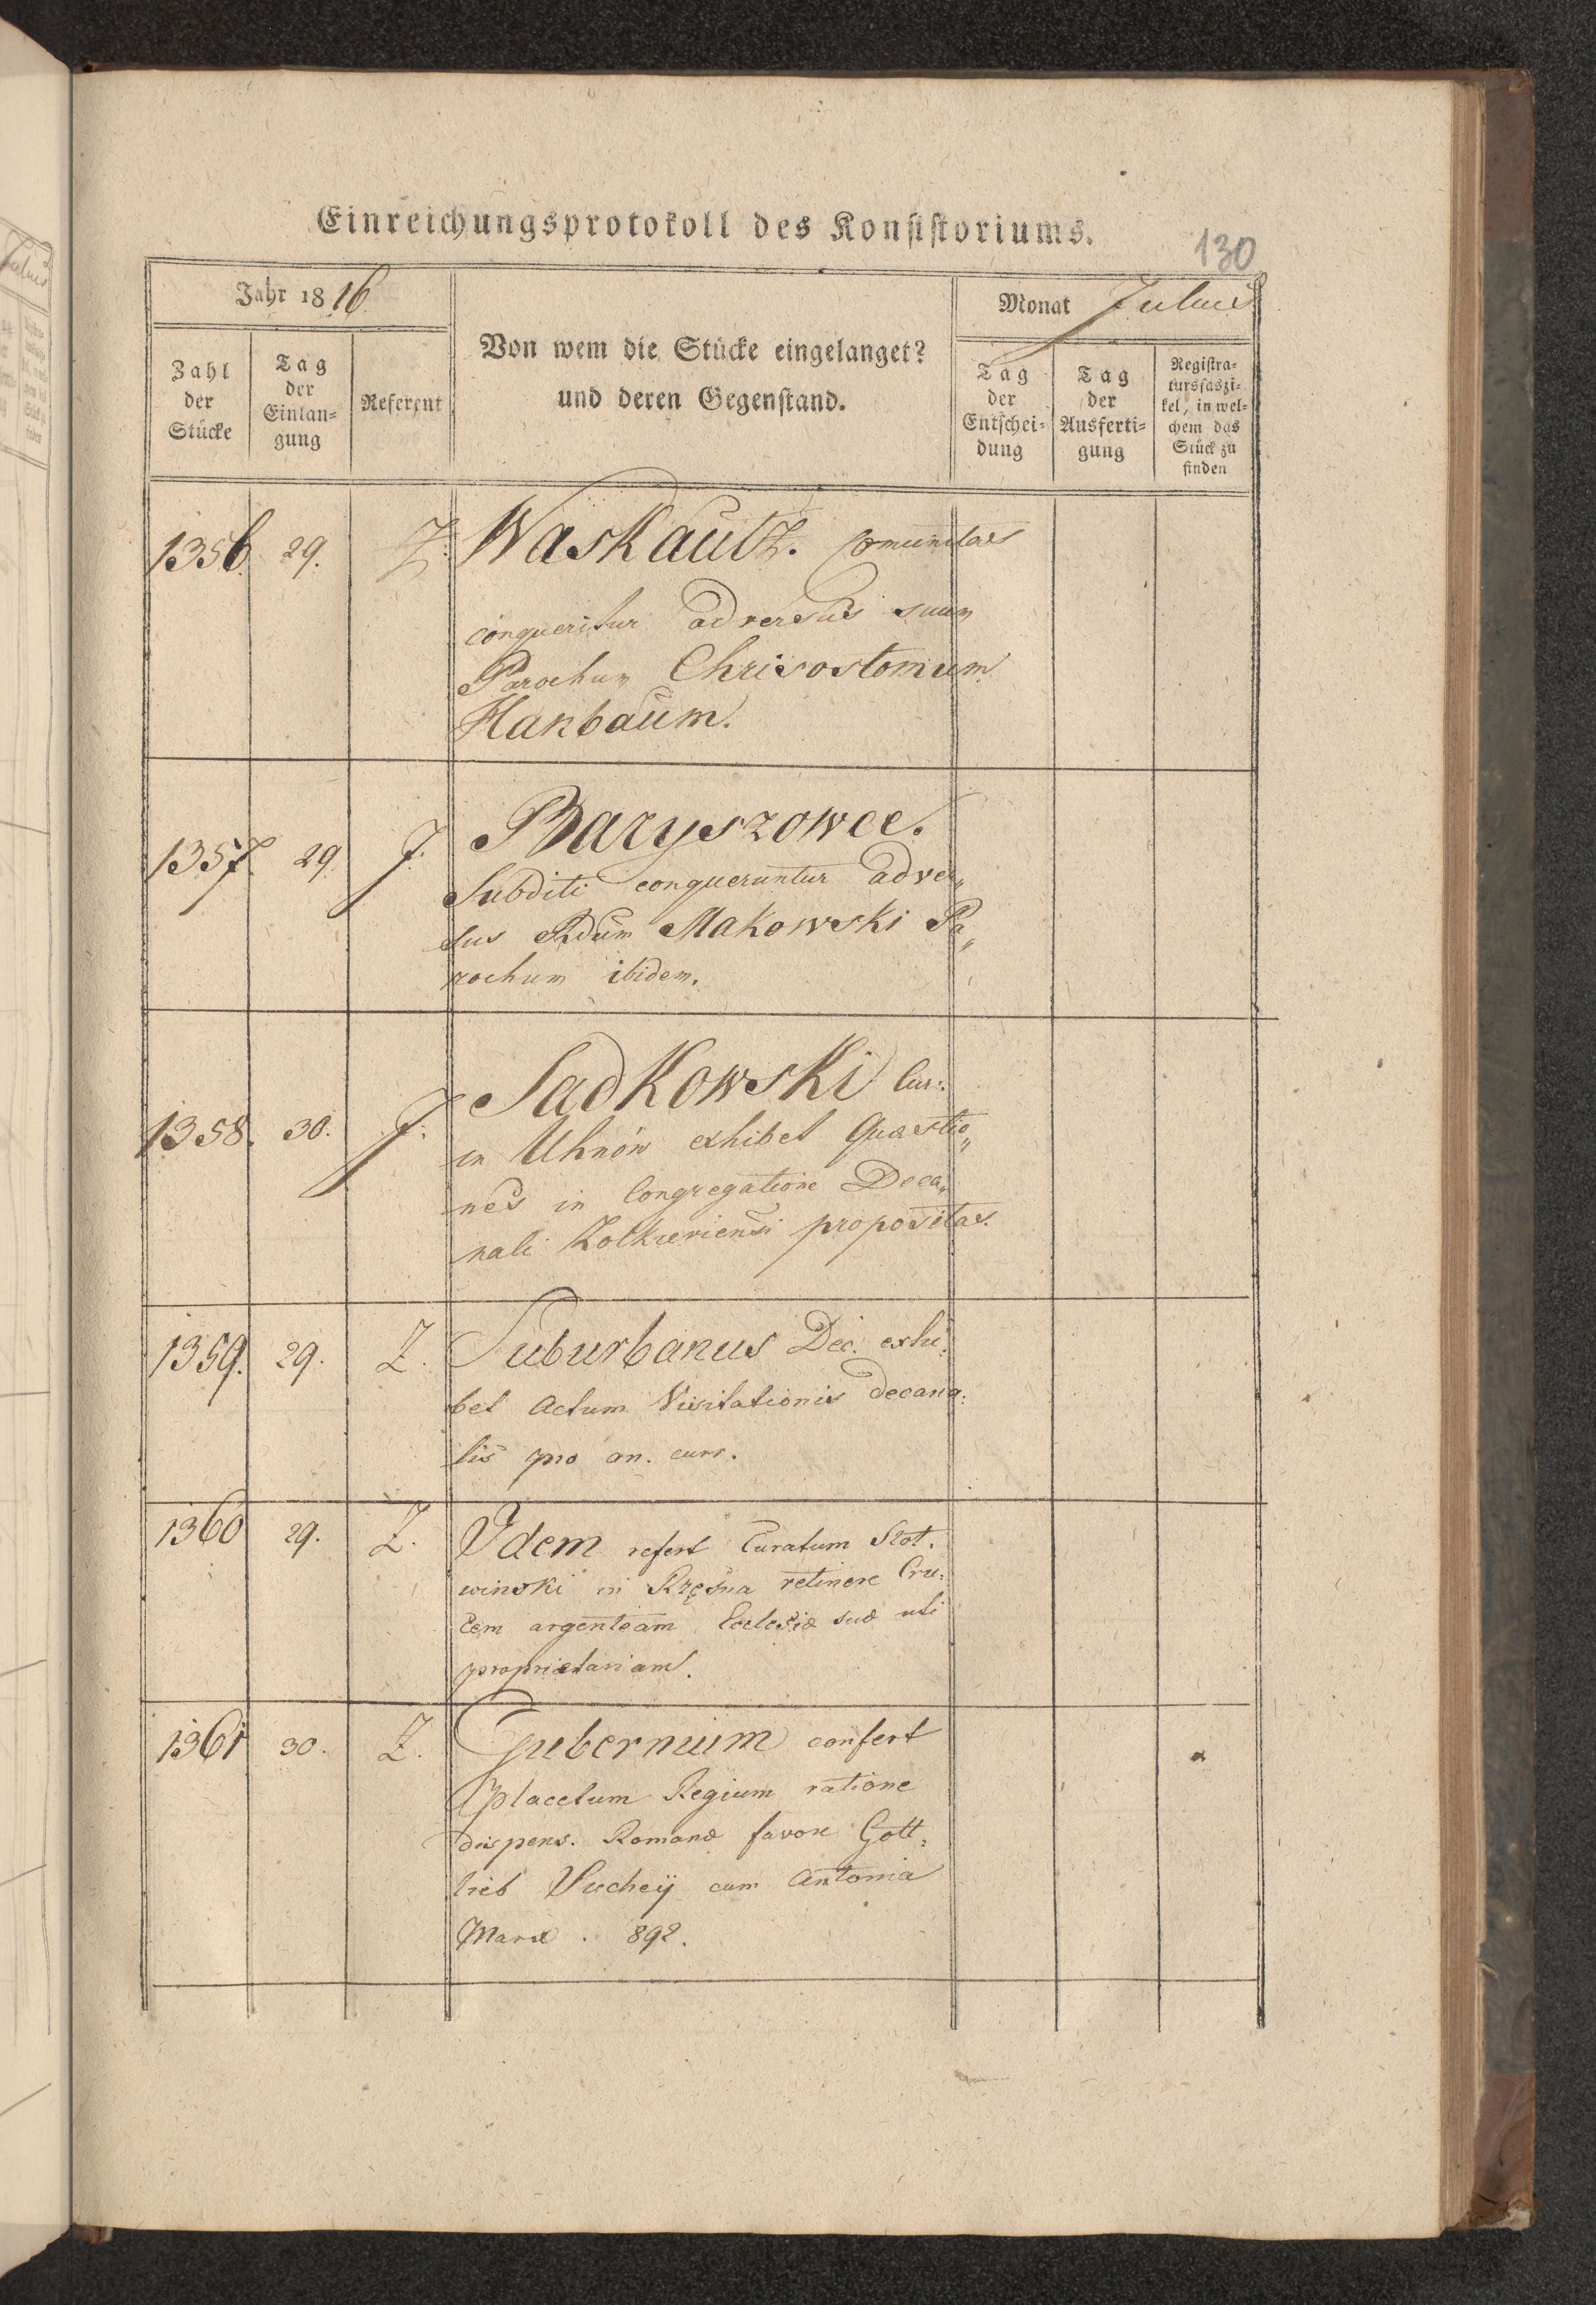 Einreichungsprotokoll des Konsistoriums.
130
Jahr 1816.
Von wem die Stücke eingelanget?
und deren Gegenstand.
Monat Julius
Zahl
der
Stücke
Tag
der
Einlan=
gung
Referent
Tag
der
Entschei=
dung
Tag
der
Ausferti=
gung
Registra=
tursfaszi=
kel, in wel=
chem das
Stück zu
finden
1356. 29. Z. Waskautz. Comunitas
conqueritur adversus suum
Parochum Chrisostomum
Hanbaum.
1357. 29. J. Baryszowce.
Subditi conqueruntur adver„
sus Rdum Makowski Pa„
rochum ibidem.
1358. 30. J. Sadkowski Cur:
in Uhnów exhibet Quaestio„
nes in Congregatione Deca„
nali Zolkieviensi propositas.
1359. 29. Z. Suburbanus Dec. exhi:
bet Actum Visitationis decana:
lis pro an. curr.
1360 29. Z. Idem refert Curatum Slot.
winski in Rzęsna retinere Cru:
cem argenteam Ecclesiæ suæ uti
proprietariam.
1361 30. Z. Gubernium confert
placetum Regium ratione
dispens. Romanæ favore Gott:
lieb Suchey cum Antonia
Marx. 892.